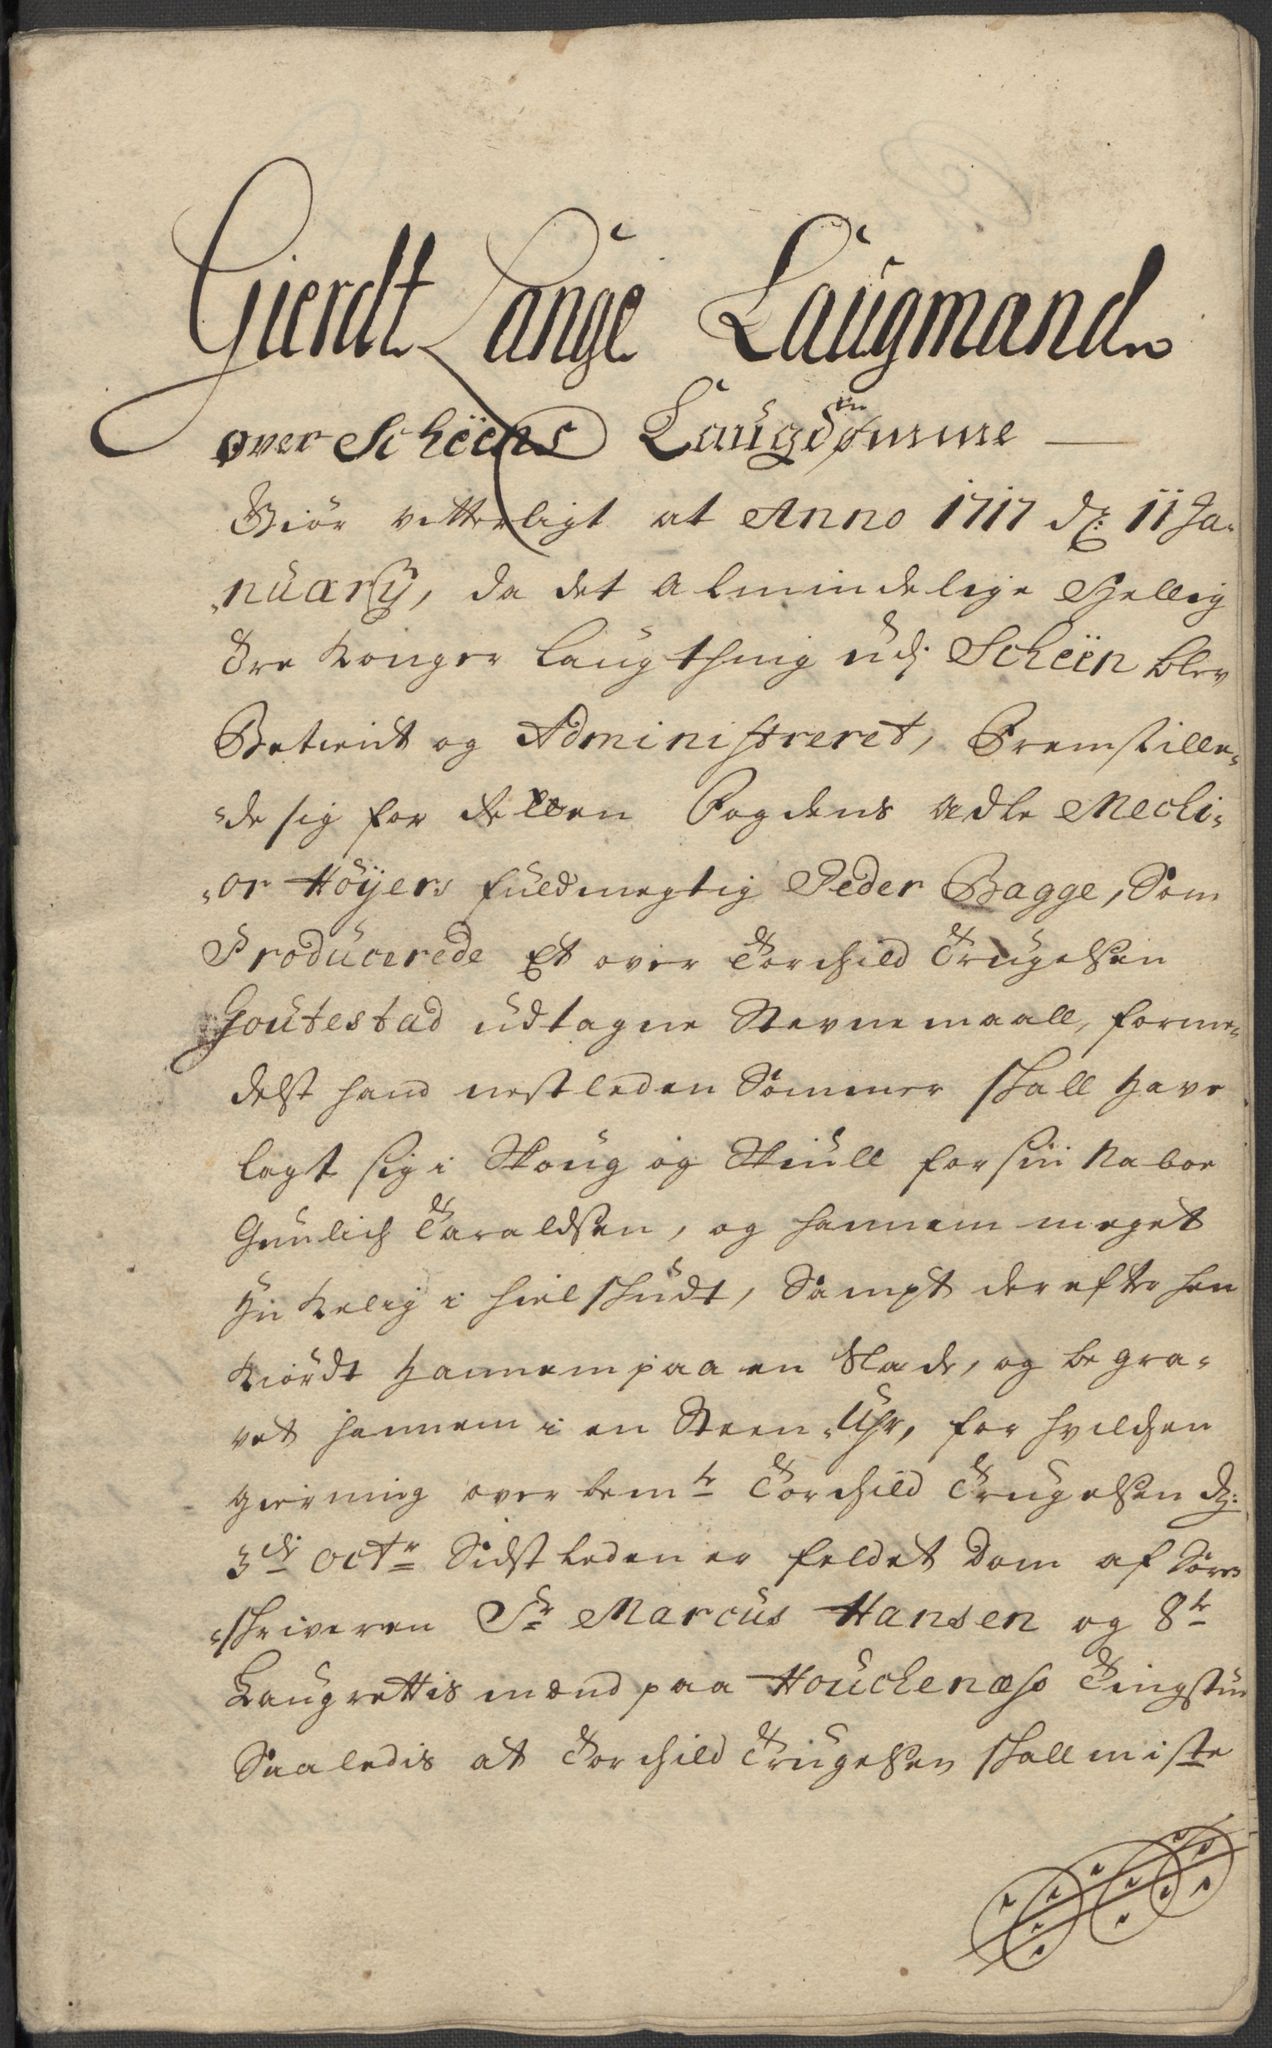 Gierdt Lange Laugmand
over Scheens Laugdømme
Giör vitterligt at Anno 1717 d: 11 Ja-
nuary, da det Almindelige Hellig
Tre Konger Laugthing udj Scheen blev
Betient og Administreret, Fremstille-
de sig for Retten Fogdens Adle Mechi-
or Höyers fuldmegtig Peder Bagge, Som
Producerede Et over Torchild Trugelsen
Goutestad udtagne Stevnemaall, forme-
delst hand nestleden Sommer skall have
lagt sig i Skoug og Skiull for sin Naboe
Gunlich Taraldsen, og hannem meget
Ynkelig i hiel skudt, Sampt derefter hen
Kiördt hannem paa en Slæde, og begra-
vet hannem i en Steen-Uhr, for hvilchen
gierning over bemte Torchild Trugelsen d:
3die Octr Sidstleden er feldet Dom af Soren-
skriveren Sr Marcus Hansen og 8te
Laugrettis mænd paa Houchenæss Tingstue
Saaledis at Torchild Trugelsen skall miste